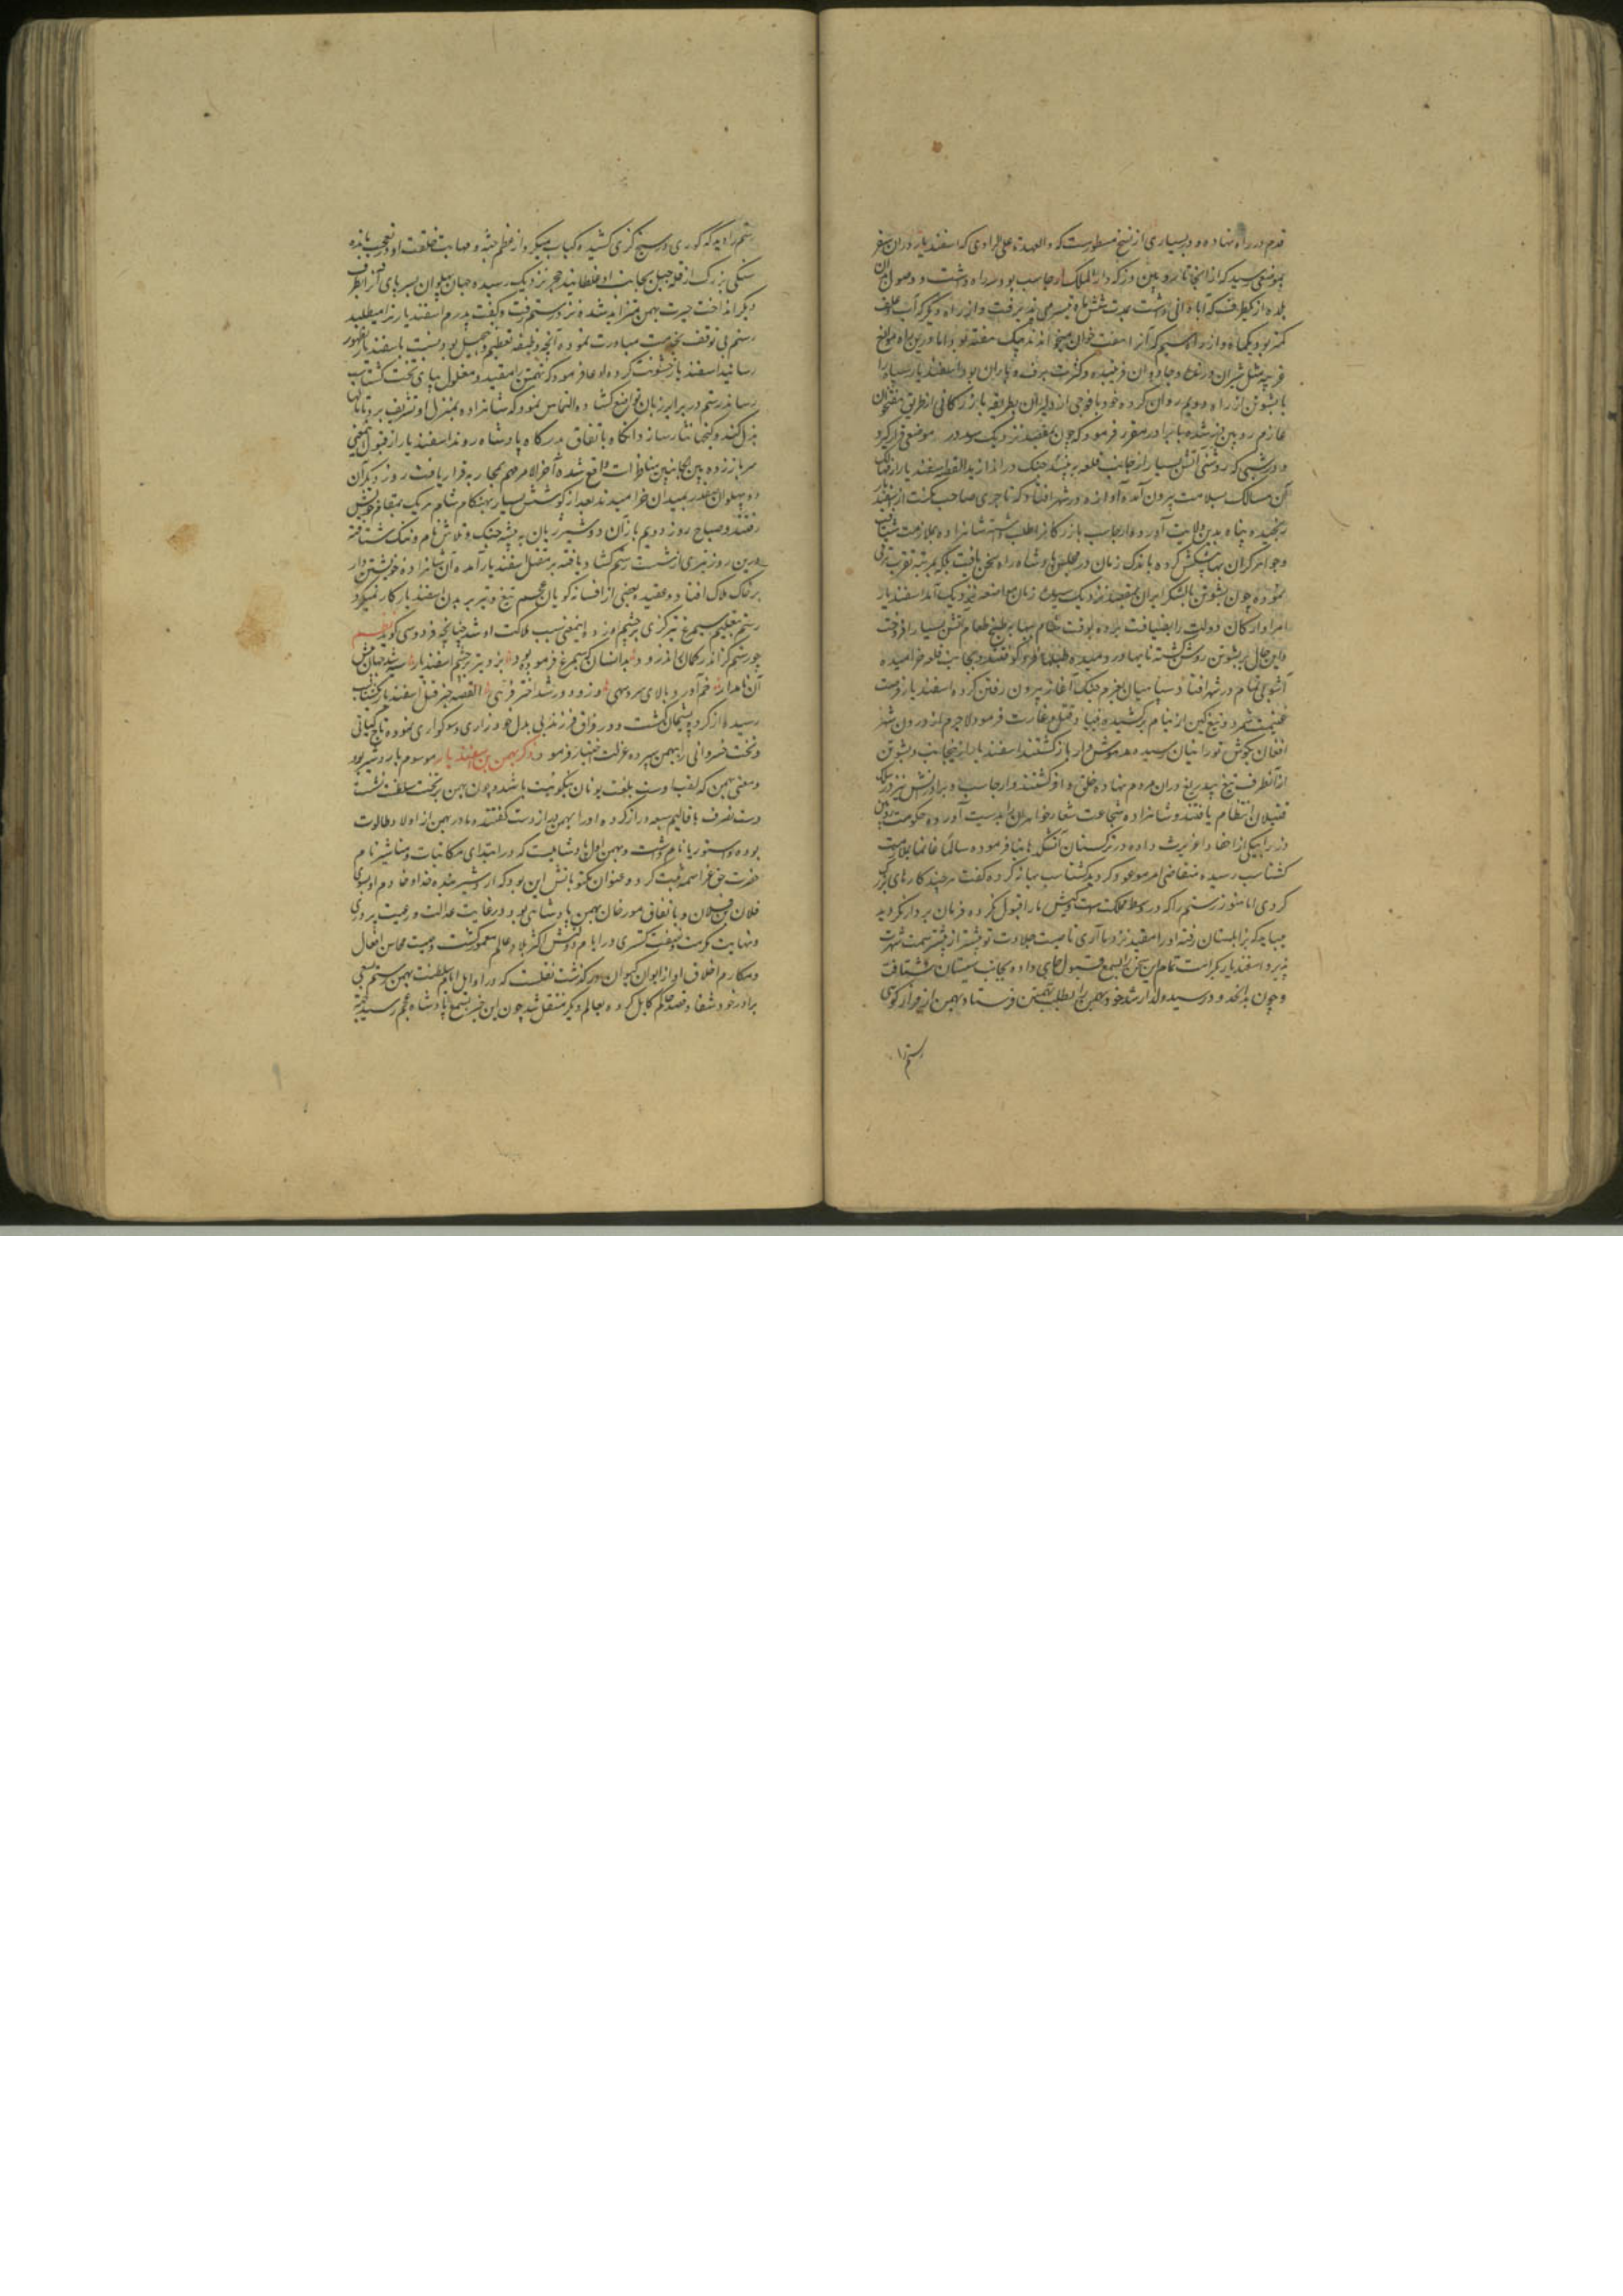 قدم در راه نهاده و در بسیاری از نسخ مسطورست که والعهدة علی الراوی که اسفندیار در آن سفر
بموضعی رسید که از آنجا تا رویین دز که دار الملک ارجاسب بود سه راه داشت و وصول بدان
بلده از یکطرف که آبادانی داشت بمدت شش ماه میسر می پذیرفت و از راه دیگر که آب و علف
کمتر بود یکماه و از راه سیم که آنرا هفت خوان میخوانند بیک هفته بود اما در این راه مواضع
غریبه مثل شیران درنده و جادوان فریبنده و کثرت برف و باران بود اسفندیار سپاه را
با بشوتن از راه دویم روان کرده خود با فوجی از دلیران بطریقه بازرگانی از طریق هفتخوان
عازم رویین دز شده با برادر مقرر فرمود که چون بمقصد نزدیک رسد در موضعی قرار گیرد
و در شبی که روشنی آتش بسیار از جانب قلعه به بیند جنک در اندازد القصه اسفندیار از
آن مسالک بسلامت بیرون آمده آوازه در شهر افتاد که تاجری صاحب مکنت از اسفندیار
رنجیده پناه بدین ولایت آورده ارجاسب بازرگانرا طلب داشته شاهزاده بملازمت شتافت
و جواهر گران بها پیشکش کرده باندک زمان در مجلس پادشاه راه سخن یافت بلکه بمرتبه تقرب ترقی
نموده چون بشوتن با لشکر ایران بمقصد نزدیک رسید
امرا و ارکان دولت را بضیافت برده بوقت شام بهانه طبخ طعام آتش بسیار افروخت
و این حال بر بشوتن روشن گشته بجانب قلعه خرامیده
آشوبی تمام در شهر افتاد و سپاهیان بعزم جنک آغاز بیرون رفتن کردند اسفندیار فرصت
غنیمت شمرده تیغ کین از نیام برکشیده و بقتل و غارت فرمود لاجرم از درون شهر
افغان بگوش تورانیان رسیده مدهوش وار باز گشتند اسفندیار از اینجانب و بشوتن
از آنطرف تیغ بیدریغ در آن مردم نهاده خلقی وافر کشتند و ارجاسب و برادرش نیز در سلک
قتیلان انتظام یافتند و شاهزاده شجاعت شعار خواهران را بدست آورده حکومت رویین
دز را بیکی از احفاد اغریرث داده در ترکستان آتشکدها بنا فرموده سالما غانما بملازمت
گشتاسب رسیده متقاضی امر موعود گردید گشتاسب بهانه کرده گفت هر چند کارهای بزرگ
کردی اما هنوز رستم را که در وسط مملکت ماست کیش ما را قبول نکرده فرمان بردار نگردید
میباید که بزابلستان رفته او را مقید نزد ما آری تا صیت جلادت تو بیشتر از بیشتر سمت شهرت
پذیرد اسفندیار بکراهت تمام این سخن را بسمع قبول جای داده بجانب سیستان شتافت
و چون بدانحدود رسید ولد ارشد خود بهمن را بطلب تهمتن فرستاد و بهمن از فراز کوهی
رستم را
رستم را دید که گوری در سیخ گزی کشیده کباب میکرد از عظم جثه و مهابت خلقت او در تعجب مانده
سنگی بزرک از قله جبل بجانب او غلطانید حجر نزدیک رسیده جهان پهلوان بسر پای آنرا بطرف
دیگر انداخت حیرت بهمن متزاید شده نزد رستم رفت و گفت پدرم اسفندیار ترا میطلبد
رستم بی توقف بخدمت مبادرت نموده آنچه وظیفه تعظیم و تبجیل بود نسبت باسفندیار بظهور
رسانید اسفندیار خشونت کرده فرمود که تهمتن را مقید و مغلول بپای تخت گشتاسب
رساند رستم در برابر زبان تواضع گشاده التماس نمود که شاهزاده بمنزل او تشریف برد تا مالها
بذل کند و گنجها نثار سازد و آنگاه باتفاق بدرگاه پادشاه روند اسفندیار از قبول اینمعنی
سر باز زده بین الجانبین مناظرات واقع شده آخر الامر مهم بمحاربه قرار یافت روز دیگر آن
دو پهلوان صفدر بمیدان خرامیدند بعد از کوشش بسیار بهنگام شام هر یک بمقام خویش
رفتند و صباح روز دویم باز آن دو شیر ژیان به بیشه جنک و تلاش نام و ننک شتافته
درین روز تیری از شست رستم گشاد یافته بر مقتل اسفندیار آمده آن شاهزاده خویشتن دار
بر خاک هلاک افتاد و بعقیده بعضی از افسانه گویان عجم تیغ و تیر بر بدن اسفندیار کار نمیکرد
رستم بتعلیم سیمرغ تیر گزی بر چشم او زده اینمعنی سبب هلاکت او شد چنانچه فردوسی گوید نظم
چو رستم گز اندر کمان راند زود بدانسان که سیمرغ فرموده بود بزد تیر بر چشم اسفندیار سیه شد جهان پیش
آن نامدار خم آورد بالای سرو سهی ازو دور شد اختر و فرهی القصه خبر قتل اسفندیار بگشتاسب
رسیده از کرده پشیمان گشت و در فراق فرزند بی بدل خود زاری و سوگواری نموده تاج کیانی
و تخت خسروانی را ببهمن سپرده عزلت اختیار فرمود ذکر بهمن بن اسفندیار موسوم باردشیر بود
و معنی بهمن که لقب اوست بلغت یونان نیکو نیت باشد و چون بهمن بر تخت سلطنت نشست
دست تصرف باقالیم سبعه دراز کرده او را بهمن دراز دست گفتند و مادر بهمن از اولاد طالوت
بوده و استوریا نام داشت و بهمن اول پادشاهیست که در ابتدای مکاتبات و مناشیر نام
حضرت حق عز اسمه ثبت کرد و عنوان مکتوباتش این بود که از اردشیر بنده خدا و خادم او بسوی
فلان بن فلان و باتفاق مورخان بهمن پادشاهی بود در غایت عدالت و رعیت پروری
و نهایت مکرمت و نصفت گستری در ایام دولتش اکثر بلاد عالم معمور گشت و صیت محاسن افعال
و مکارم اخلاق او از ایوان کیوان در گذشت نقلست که در اوایل ایام سلطنت بهمن رستم بسعی
برادر خود شغاد و قصد حاکم کابل کرده بعالم دیگر منتقل شد چون این خبر بسمع پادشاه عجم رسید